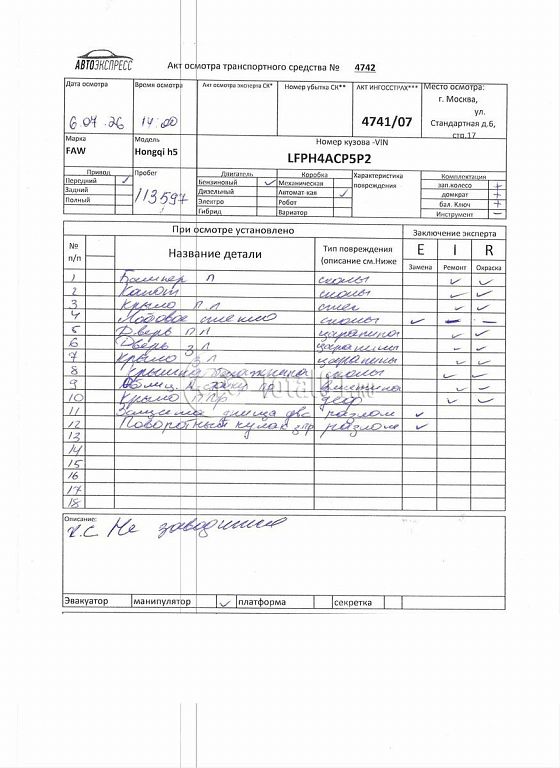 АВТОЭКСПРЕСС
Акт осмотра транспортного средства № 4742
Дата осмотра
Время осмотра
Акт осмотра эксперта СК*
Номер убытка СК**
АКТ ИНГОССТРАХ***
Место осмотра:
г. Москва,
ул.
Стандартная д.6,
стр.17
14:00
4741/07
Марка
Модель
Номер кузова -VIN
FAW
Hongqi h5
LFPH4ACP5P2
Привод
Пробег
Двигатель
Коробка
Характеристика повреждения
Комплектация
Передний ✓
113597
Бензиновый ✓
Механическая
зап.колесо +
Задний
Дизельный
Автомат-кая ✓
домкрат +
Полный
Электро
Робот
бал. Ключ +
Гибрид
Вариатор
Инструмент –
При осмотре установлено
Заключение эксперта
№ п/п
Название детали
Тип повреждения (описание см.Ниже
E
I
R
Замена
Ремонт
Окраска
1 Бампер П сколы ✓ ✓
2 Капот сколы ✓ ✓
3 Крыло П Л ✓ ✓
4 Лобовое стекло сколы ✓ – –
5 Дверь П Л царапина ✓ ✓
6 Дверь З Л царапины ✓ ✓
7 Крыло З Л царапины ✓ ✓
8 Крышка багажника сколы ✓ ✓
9 вмятина ✓ ✓
10 Крыло П пр деф ✓ ✓
11 Защита днища двс разлом ✓
12 Поворотный кулак з пр разлом ✓
13
14
15
16
17
18
Описание:
Т.С. Не заводится
Эвакуатор
манипулятор ✓
платформа
секретка